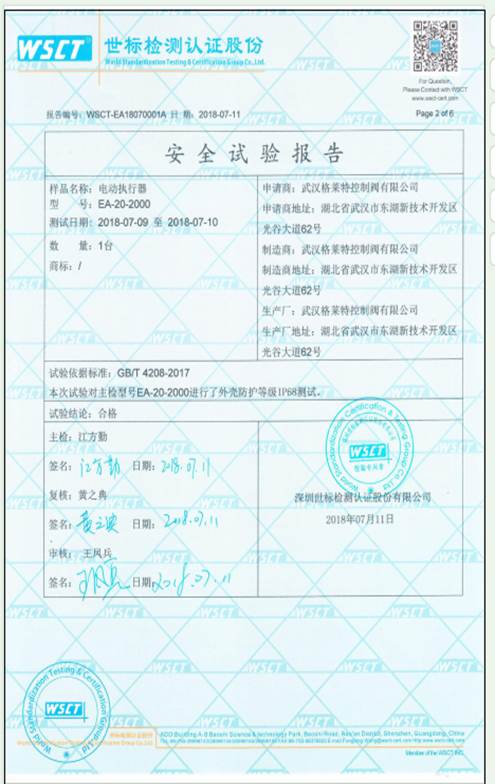 WSCT
世标检测认证股份
World Standardization Testing & Certification Group Co., Ltd.
For Question,
Please Contact with WSCT
www.wsct-cert.com
报告编号：WSCT-EA18070001A 日 期：2018-07-11
Page 2 of 6
安全试验报告
样品名称：电动执行器
型 号：EA-20-2000
测试日期：2018-07-09 至 2018-07-10
数 量：1台
商标：/
申请商：武汉格莱特控制阀有限公司
申请商地址：湖北省武汉市东湖新技术开发区
光谷大道62号
制造商：武汉格莱特控制阀有限公司
制造商地址：湖北省武汉市东湖新技术开发区
光谷大道62号
生产厂：武汉格莱特控制阀有限公司
生产厂地址：湖北省武汉市东湖新技术开发区
光谷大道62号
试验依据标准：GB/T 4208-2017
本次试验对主检型号EA-20-2000进行了外壳防护等级IP68测试。
试验结论：合格
主检：江方勤
签名：江方勤 日期：2018.07.11
复核：黄之典
签名：黄之典 日期：2018.07.11
审核：王凤兵
签名： 日期：2018.07.11
WSCT
深圳世标检测认证股份有限公司
2018年07月11日
WSCT
世标检测认证股份
Member of the WSCT INC.